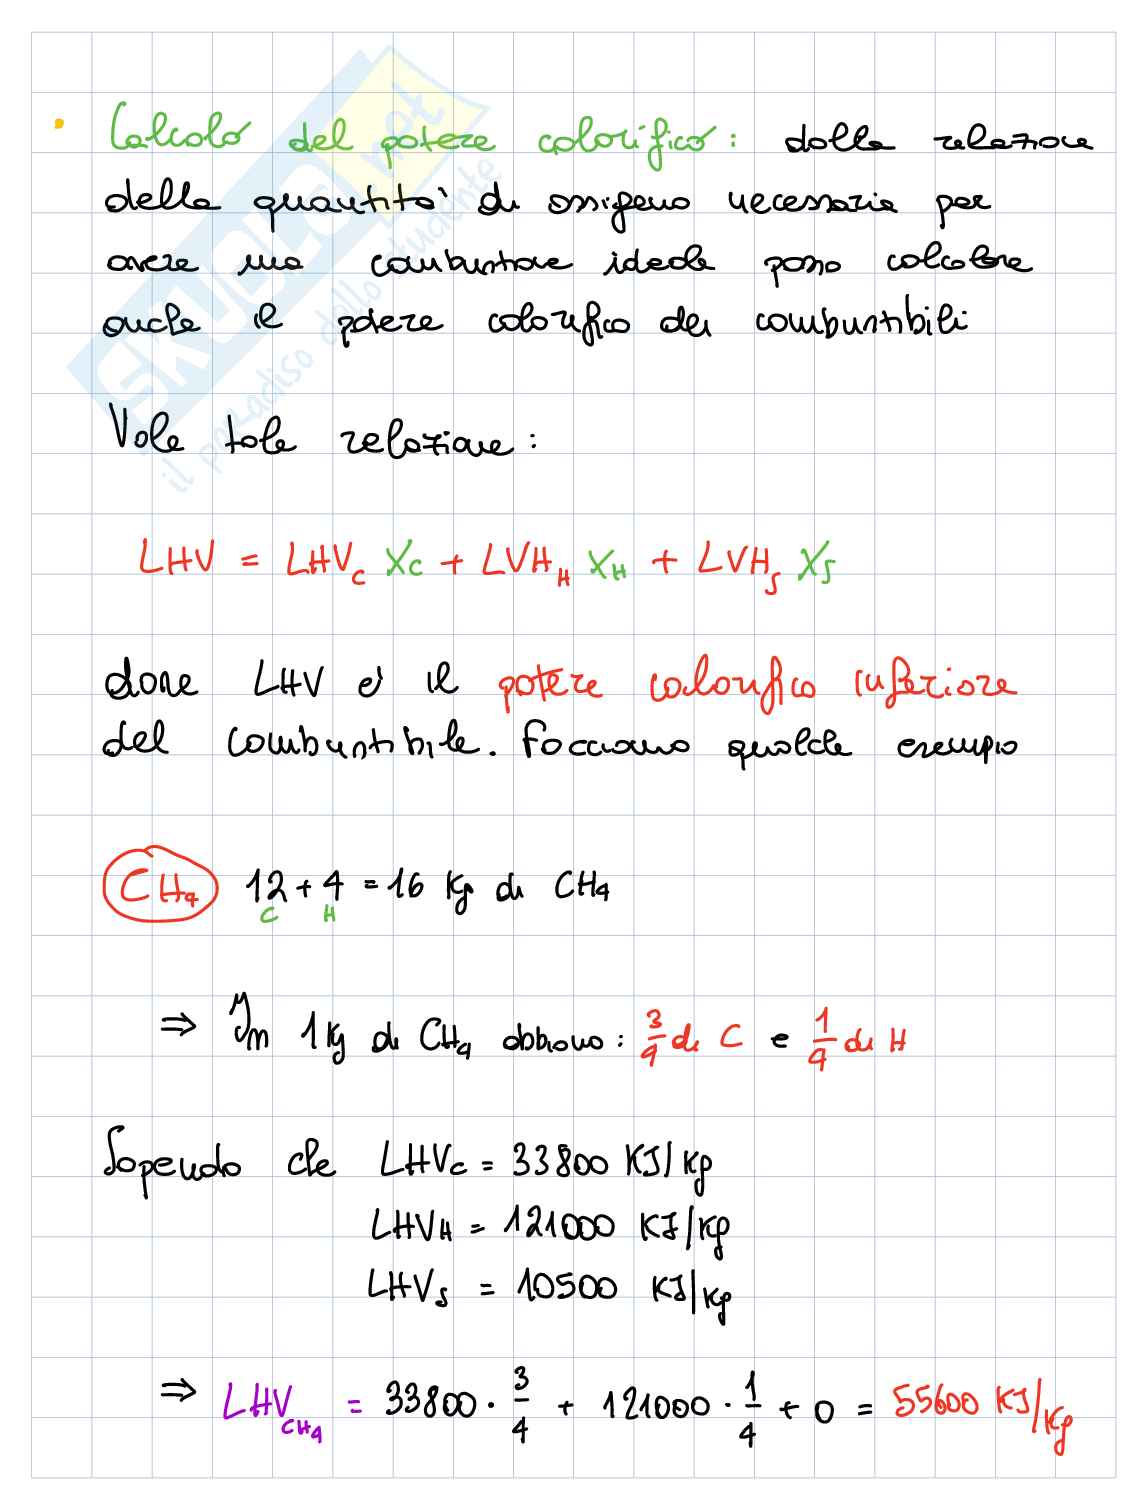 • Calcolo del potere calorifico: dalla relazione
della quantità di ossigeno necessaria per
avere una combustione ideale posso calcolare
anche il potere calorifico dei combustibili
Vale tale relazione:
LHV = LHV_C X_C + LVH_H X_H + LVH_S X_S
dove LHV è il potere calorifico inferiore
del combustibile. Facciamo qualche esempio
CH₄ 12 + 4 = 16 Kg di CH₄
C H
⇒ In 1 Kg di CH₄ abbiamo: 3/4 di C e 1/4 di H
Sapendo che LHV_C = 33800 KJ/Kg
LHV_H = 121000 KJ/Kg
LHV_S = 10500 KJ/Kg
⇒ LHV_CH₄ = 33800 · 3/4 + 121000 · 1/4 + 0 = 55600 KJ/Kg
SKUOLA.net
il paradiso dello studente